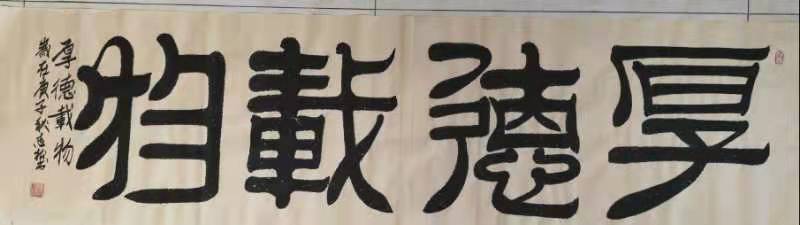 厚德載物
厚德載物
歲在庚子秋